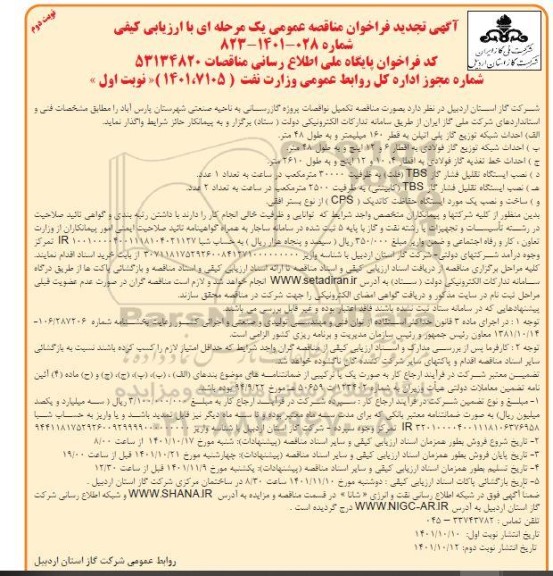 نوبت دوم
آگهی تجدید فراخوان مناقصه عمومی یک مرحله ای با ارزیابی کیفی
شماره ۰۲۸-۱۴۰۱-۸۲۳
کد فراخوان پایگاه ملی اطلاع رسانی مناقصات ۵۳۱۳۴۸۲۰
شماره مجوز اداره کل روابط عمومی وزارت نفت ( ۱۴۰۱،۷۱۰۵ )« نوبت اول »
شرکت ملی گاز ایران
شرکت گاز استان اردبیل
شرکت گاز استان اردبیل در نظر دارد بصورت مناقصه تکمیل نواقصات پروژه گازرسانی به ناحیه صنعتی شهرستان پارس آباد را مطابق مشخصات فنی و
استانداردهای شرکت ملی گاز ایران از طریق سامانه تدارکات الکترونیکی دولت ( ستاد) برگزار و به پیمانکار حائز شرایط واگذار نماید.
الف) احداث شبکه توزیع گاز پلی اتیلن به قطر ۱۶۰ میلیمتر و به طول ۴۸ متر.
ب ) احداث شبکه توزیع گاز فولادی به اقطار ۶ و ۱۲ اینچ و به طول ۴۸ متر.
ج ) احداث خط تغذیه گاز فولادی به اقطار ۴، ۱۰ و ۱۲ اینچ و به طول ۲۶۱۰ متر.
د ) نصب ایستگاه تقلیل فشار گاز TBS (فلزی) به ظرفیت ۳۰۰۰۰ مترمکعب در ساعت به تعداد ۱ عدد.
هـ ) نصب ایستگاه تقلیل فشار گاز TBS (کابینتی) به ظرفیت ۲۵۰۰ مترمکعب در ساعت به تعداد ۲ عدد.
و ) ساخت و نصب یک مورد ایستگاه حفاظت کاتدیک ( CPS ) از نوع بستر افقی
بدین منظور از کلیه شرکتها و پیمانکاران متخصص واجد شرایط که توانایی و ظرفیت خالی انجام کار را دارند با داشتن رتبه بندی و گواهی تائید صلاحیت
در رشته تأسیسات و تجهیزات یا رشته نفت و گاز با پایه ۵ ثبت شده در سامانه ساجار به همراه گواهینامه تائید صلاحیت ایمنی امور پیمانکاران از وزارت
تعاون ، کار و رفاه اجتماعی و ضمن واریز مبلغ ۳۵۰/۰۰۰ ریال ( سیصد و پنجاه هزار ریال ) به حساب شبا IR تمرکز
وجوه درآمد شرکتهای دولتی- شرکت گاز استان اردبیل با شناسه واریز از بابت خرید اسناد اقدام نمایند.
کلیه مراحل برگزاری مناقصه از دریافت اسناد ارزیابی کیفی و اسناد مناقصه تا ارائه اسناد ارزیابی کیفی و اسناد مناقصه و بازگشائی پاکت ها از طریق درگاه
سامانه تدارکات الکترونیکی دولت ( ستاد) به آدرس WWW.setadiran.ir انجام خواهد شد و لازم است مناقصه گران در صورت عدم عضویت قبلی
مراحل ثبت نام در سایت مذکور و دریافت گواهی امضای الکترونیکی را جهت شرکت در مناقصه محقق سازند.
پیشنهادهایی که در سامانه ستاد ثبت نشده باشند فاقد اعتبار بوده و غیر قابل بررسی می باشند.
توجه ۱ : در اجرای ماده ۳ قانون حداکثر استفاده از توان فنی و مهندسی، تولیدی و صنعتی و اجرائی کشور رعایت بخشنامه شماره ۱۰۶/۲۸۷۲۰۶-
۱۳۸۱/۱۰/۱۴ معاون رئیس جمهور و رئیس سازمان مدیریت و برنامه ریزی کشور الزامی است.
توجه ۲ : کارفرما پس از بررسی مدارک و اسناد ارزیابی کیفی از مناقصه گران واجد شرایط که حداقل امتیاز لازم را کسب کرده باشند نسبت به بازگشائی
سایر اسناد مناقصه اقدام و پاکتهای سایر شرکت کننده گان ناگشوده خواهد شد.
تضمین معتبر شرکت در فرآیند ارجاع کار به صورت یک یا ترکیبی از ضمانتنامه های موضوع بندهای (الف) ، (ب)، (پ)، (ج)، (چ) و (ح) ماده (۴) آئین
نامه تضمین معاملات دولتی هیأت وزیران به شماره ۱۲۳۴۰۲/ت ۵۰۶۵۹ هـ مورخ ۹۴/۹/۲۲ بوده باشد.
۱- مبلغ و نوع تضمین شرکت در فرآیند ارجاع کار : سپرده شرکت در فرآیند ارجاع کار به مبلغ ۳/۱۰۰/۰۰۰/۰۰۰ ریال ( سه میلیارد و یکصد
میلیون ریال) به صورت ضمانتنامه معتبر بانکی که برای مدت سه ماه معتبر بوده و برای سه ماه دیگر نیز قابل تمدید باشد و یا واریز به حساب شبا
IR تمرکز وجوه سپرده - شرکت گاز استان اردبیل و شناسه واریز
۲- تاریخ شروع فروش بطور همزمان اسناد ارزیابی کیفی و سایر اسناد مناقصه (پیشنهادات): شنبه مورخ ۱۴۰۱/۱۰/۱۷ از ساعت ۸/۰۰
۳- تاریخ پایان فروش بطور همزمان اسناد ارزیابی کیفی و سایر اسناد مناقصه (پیشنهادات): چهارشنبه مورخ ۱۴۰۱/۱۰/۲۱ از قبل از ساعت ۱۹/۰۰
۴- تاریخ تسلیم بطور همزمان اسناد ارزیابی کیفی و سایر اسناد مناقصه (پیشنهادات): یکشنبه مورخ ۱۴۰۱/۱۱/۹ قبل از ساعت ۱۲/۳۰
۵- تاریخ بازگشائی پاکات اسناد ارزیابی کیفی : دوشنبه مورخ ۱۴۰۱/۱۱/۱۰ ساعت ۸/۳۰ در ساختمان مرکزی شرکت گاز استان اردبیل .
ضمنا آگهی فوق در شبکه اطلاع رسانی نفت و انرژی « شانا » در قسمت مناقصه و مزایده به آدرس WWW.SHANA.IR و شبکه اطلاع رسانی شرکت
گاز استان اردبیل به آدرس WWW.NIGC-AR.IR درج گردیده است .
تلفن تماس : ۳۳۷۴۳۷۸۲ – ۰۴۵
تاریخ انتشار نوبت اول: ۱۴۰۱/۱۰/۱۰
تاریخ انتشار نوبت دوم: ۱۴۰۱/۱۰/۱۲
روابط عمومی شرکت گاز استان اردبیل